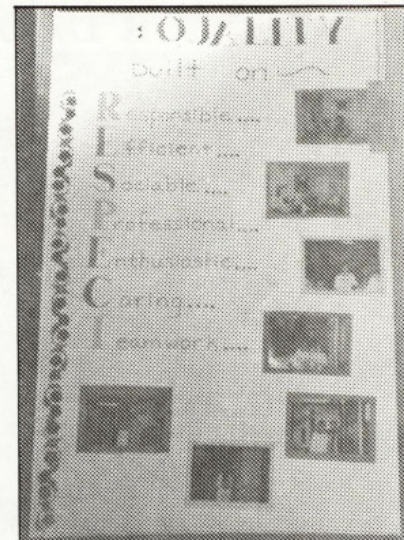 : QUALITY
built on
Responsible....
Efficient....
Sociable....
Professional....
Enthusiastic....
Caring....
Teamwork....